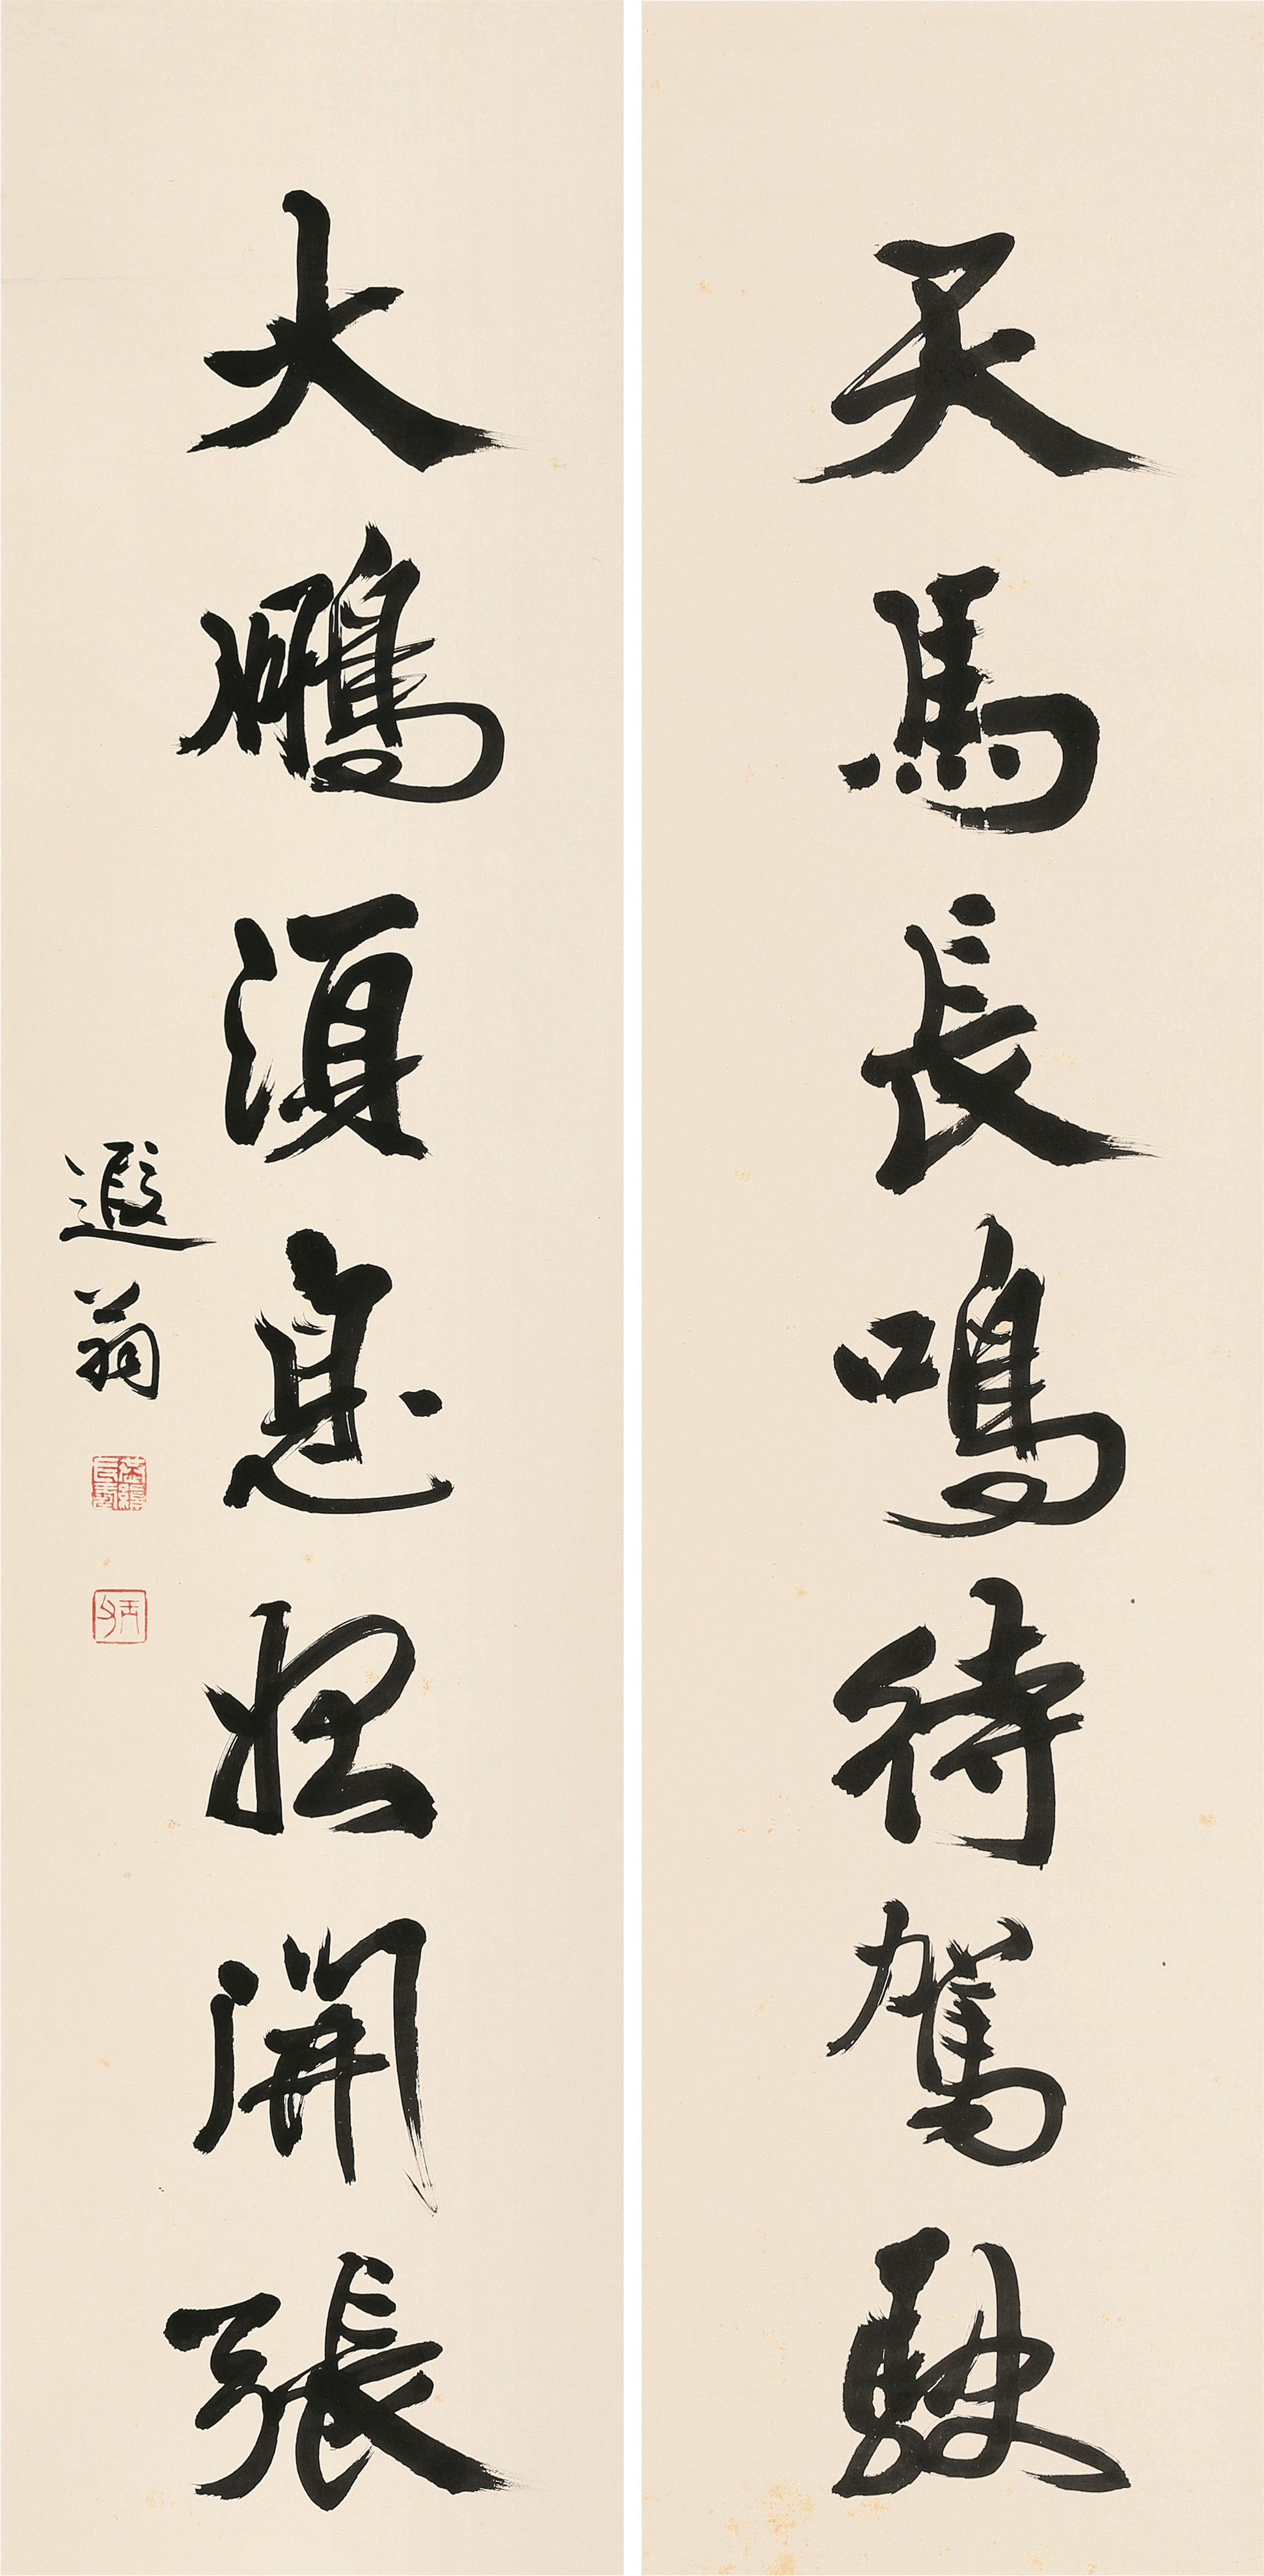 天馬長鳴待駕馭
大鵬須息始開張
遐翁